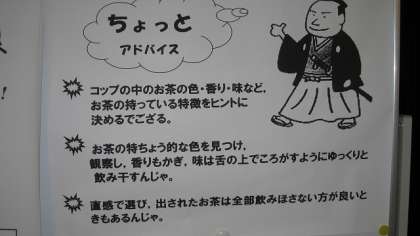 ちょっと
アドバイス
コップの中のお茶の色・香り・味など、
お茶の持っている特徴をヒントに
決めるでござる。
お茶の特ちょう的な色を見つけ,
観察し,香りもかぎ,味は舌の上でころがすようにゆっくりと
飲み干すんじゃ。
直感で選び,出されたお茶は全部飲みほさない方が良いと
きもあるんじゃ。